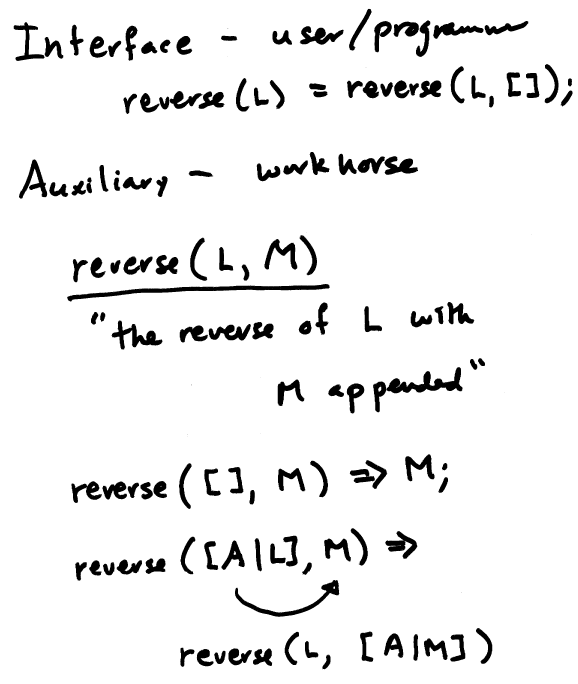 Interface - user/programmer
reverse(L) = reverse(L, []);
Auxiliary - workhorse
reverse(L, M)
"the reverse of L with
M appended"
reverse([], M) => M;
reverse([A|L], M) =>
reverse(L, [A|M])